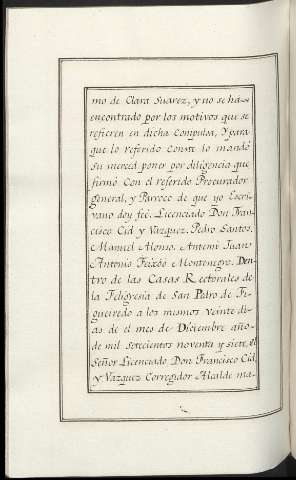 mo de Clara Suarez, y no se ha
encontrado por los motivos que se
refieren en dicha Compulsa, Y para
que lo referido Conste lo mandó
su merced poner por diligencia que
firmó Con el referido Procurador
general, y Parroco de que yo Escri-
vano doy feé. Licenciado Don Fran-
cisco Cid y Vazquez. Pedro Santos.
Manuel Alonso. Antemi Juan
Antonio Feixóo Montenegro. Den-
tro de las Casas Rectorales de
la Feligresia de San Pedro de Fi-
gueiredo a los mismos veinte di-
as de el mes de Diciembre año
de mil setecientos noventa y siete, el
Señor Licenciado Don Francisco Cid,
y Vazquez Corregidor Alcalde ma-